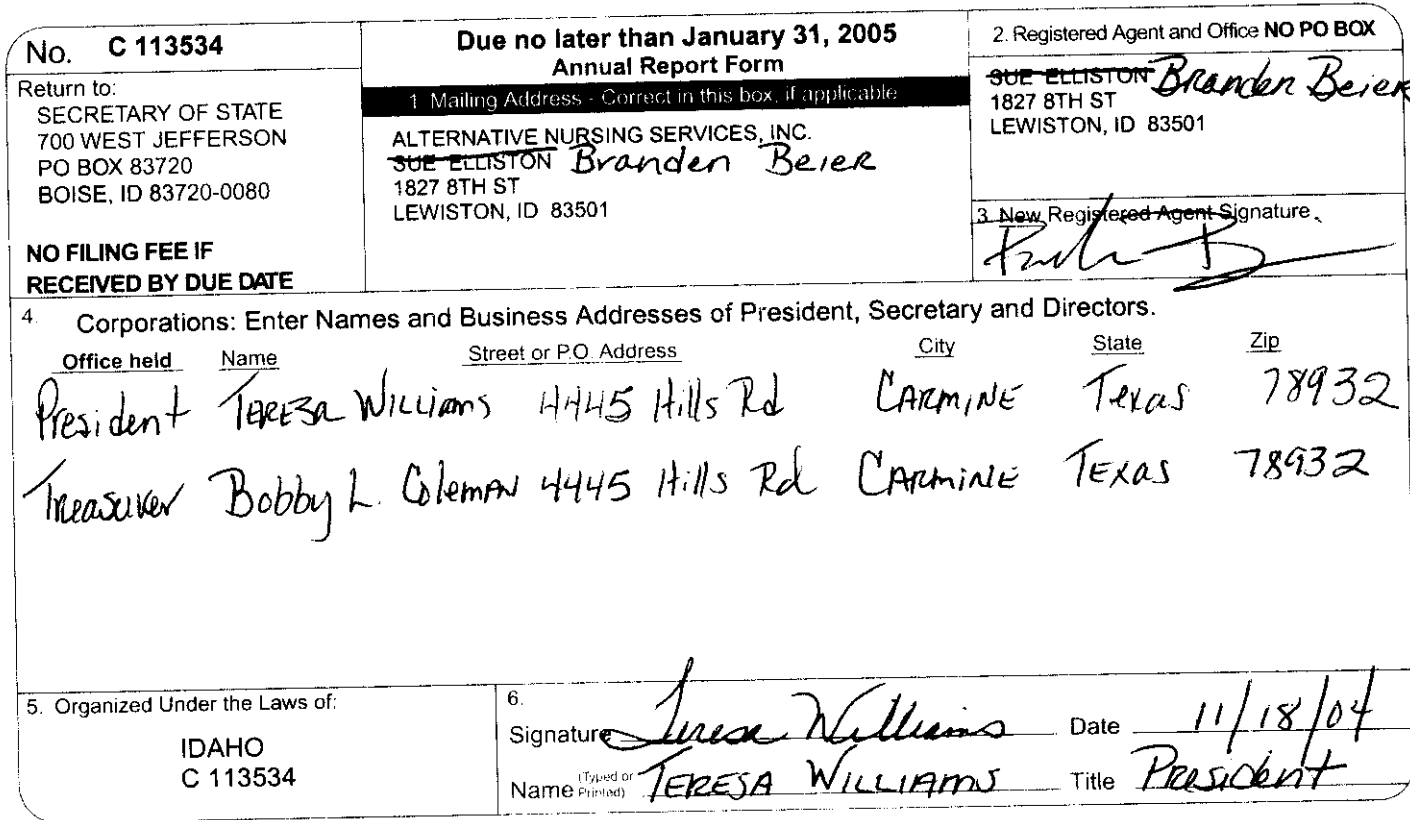 No. C 113534
Return to:
SECRETARY OF STATE
700 WEST JEFFERSON
PO BOX 83720
BOISE, ID 83720-0080
NO FILING FEE IF
RECEIVED BY DUE DATE
Due no later than January 31, 2005
Annual Report Form
1 Mailing Address - Correct in this box, if applicable
ALTERNATIVE NURSING SERVICES, INC.
SUE ELLISTON Branden Beier
1827 8TH ST
LEWISTON, ID 83501
2. Registered Agent and Office NO PO BOX
SUE ELLISTON Branden Beier
1827 8TH ST
LEWISTON, ID 83501
3. New Registered Agent Signature
4. Corporations: Enter Names and Business Addresses of President, Secretary and Directors.
Office held Name Street or P.O. Address City State Zip
President TERESA WILLIAMS 4445 Hills Rd CARMINE Texas 78932
Treasurer Bobby L. Coleman 4445 Hills Rd CARMINE TEXAS 78932
5. Organized Under the Laws of:
IDAHO
C 113534
6.
Signature Teresa Williams Date 11/18/04
Name (Typed or Printed) TERESA WILLIAMS Title President